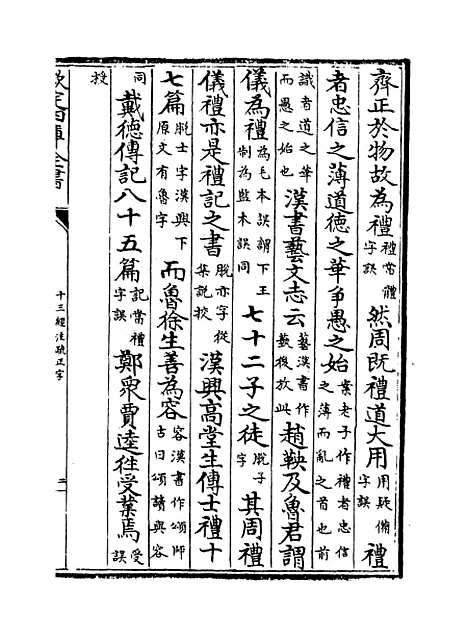 齊正於物故為禮禮當體字誤然周既禮道大用用疑備字誤禮
者忠信之薄道德之華争愚之始案老子作禮者忠信之薄而亂之首也前
識者道之華而愚之始也漢書藝文志云藝漢書作蓺後放此趙鞅及魯君謂
儀為禮為毛本誤謂下王制為監本誤同七十二子之徒脱子字其周禮
儀禮亦是禮記之書脱亦字從集説挍漢興高堂生傳士禮十
七篇脱士字漢興下原文有魯字而魯徐生善為容容漢書作頌師古曰頌讀與容
同戴德傳記八十五篇記當禮字誤鄭衆賈逵往受業焉受誤
授
欽定四庫全書
十三經注疏正字